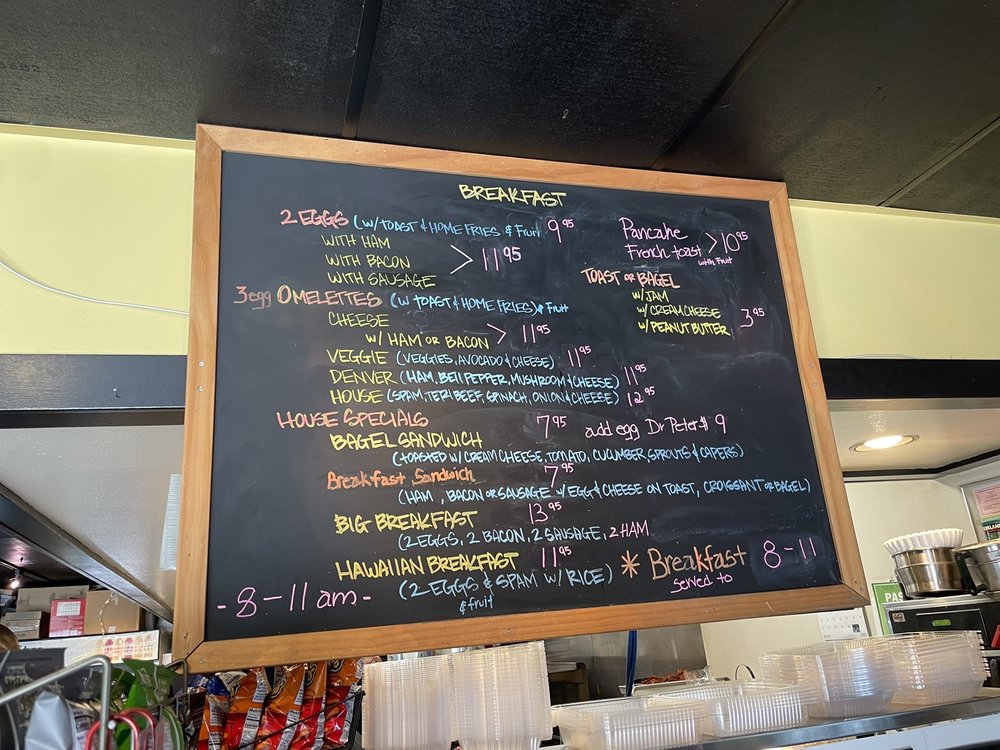 BREAKFAST
2 EGGS (W/TOAST & HOME FRIES & Fruit 9.95
WITH HAM
WITH BACON > 11.95
WITH SAUSAGE
3egg OMELETTES (W/ TOAST & HOME FRIES) & Fruit
CHEESE
W/ HAM OR BACON > 11.95
VEGGIE (VEGGIES, AVOCADO & CHEESE) 11.95
DENVER (HAM, BELL PEPPER, MUSHROOM & CHEESE) 11.95
HOUSE (SPAM, TERI BEEF, SPINACH, ONION & CHEESE) 12.95
HOUSE SPECIALS
BAGEL SANDWICH 7.95 add egg Dr Peter $ 9
(TOASTED W/ CREAM CHEESE, TOMATO, CUCUMBER, SPROUTS & CAPERS)
Breakfast Sandwich 7.95
(HAM, BACON OR SAUSAGE W/ EGG & CHEESE ON TOAST, CROISSANT OR BAGEL)
BIG BREAKFAST 13.95
(2 EGGS, 2 BACON, 2 SAUSAGE, 2 HAM
HAWAIIAN BREAKFAST 11.95
(2 EGGS & SPAM W/ RICE)
& fruit
- 8 - 11 am -
Pancake
French toast > 10.95
with Fruit
TOAST OR BAGEL
W/ JAM
W/ CREAM CHEESE 3.95
W/ PEANUT BUTTER
* Breakfast 8 - 11
served to
PAS